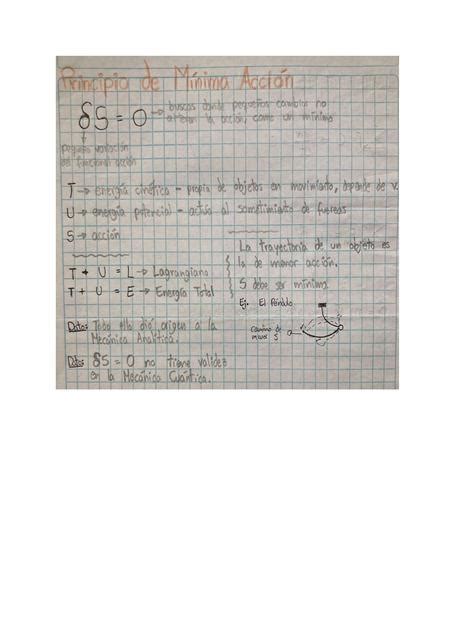 Principio de Mínima Acción
δS = 0 → buscas donde pequeños cambios no
alteran la acción, como un mínimo
pequeña variación
del funcional acción
T → energía cinética - propia de objetos en movimiento, depende de v.
U → energía potencial - actúa al sometimiento de fuerzas
S → acción
T + U = L → Lagrangiano
T + U = E → Energía Total
La trayectoria de un objeto es
la de menor acción.
S debe ser mínima
Ej. El Péndulo
Camino de
menor S
Dato: Todo ello dió origen a la
Mecánica Analítica.
Dato: δS = 0 no tiene validez
en la Mecánica Cuántica.